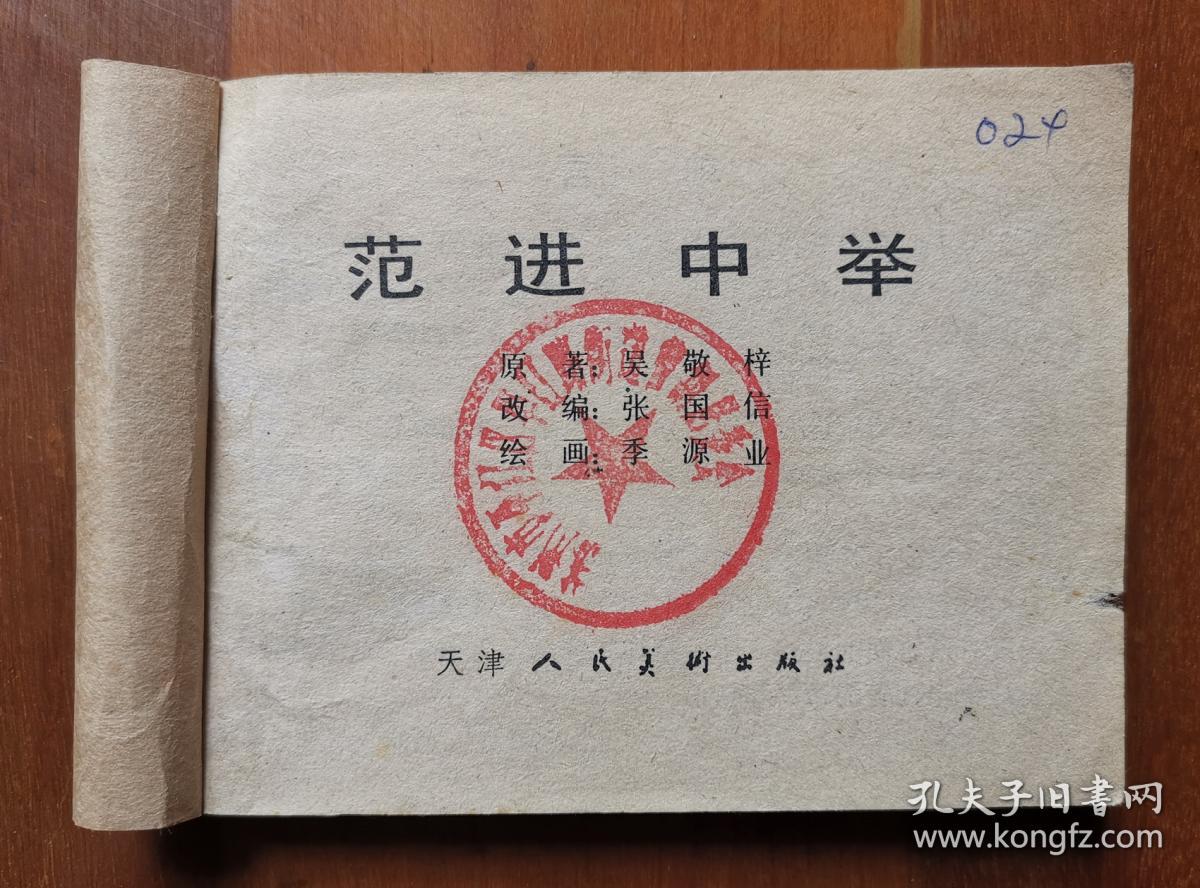 024
范进中举
原著：吴敬梓
改编：张国信
绘画：季源业
天津人民美術出版社
孔夫子旧書网
www.kongfz.com